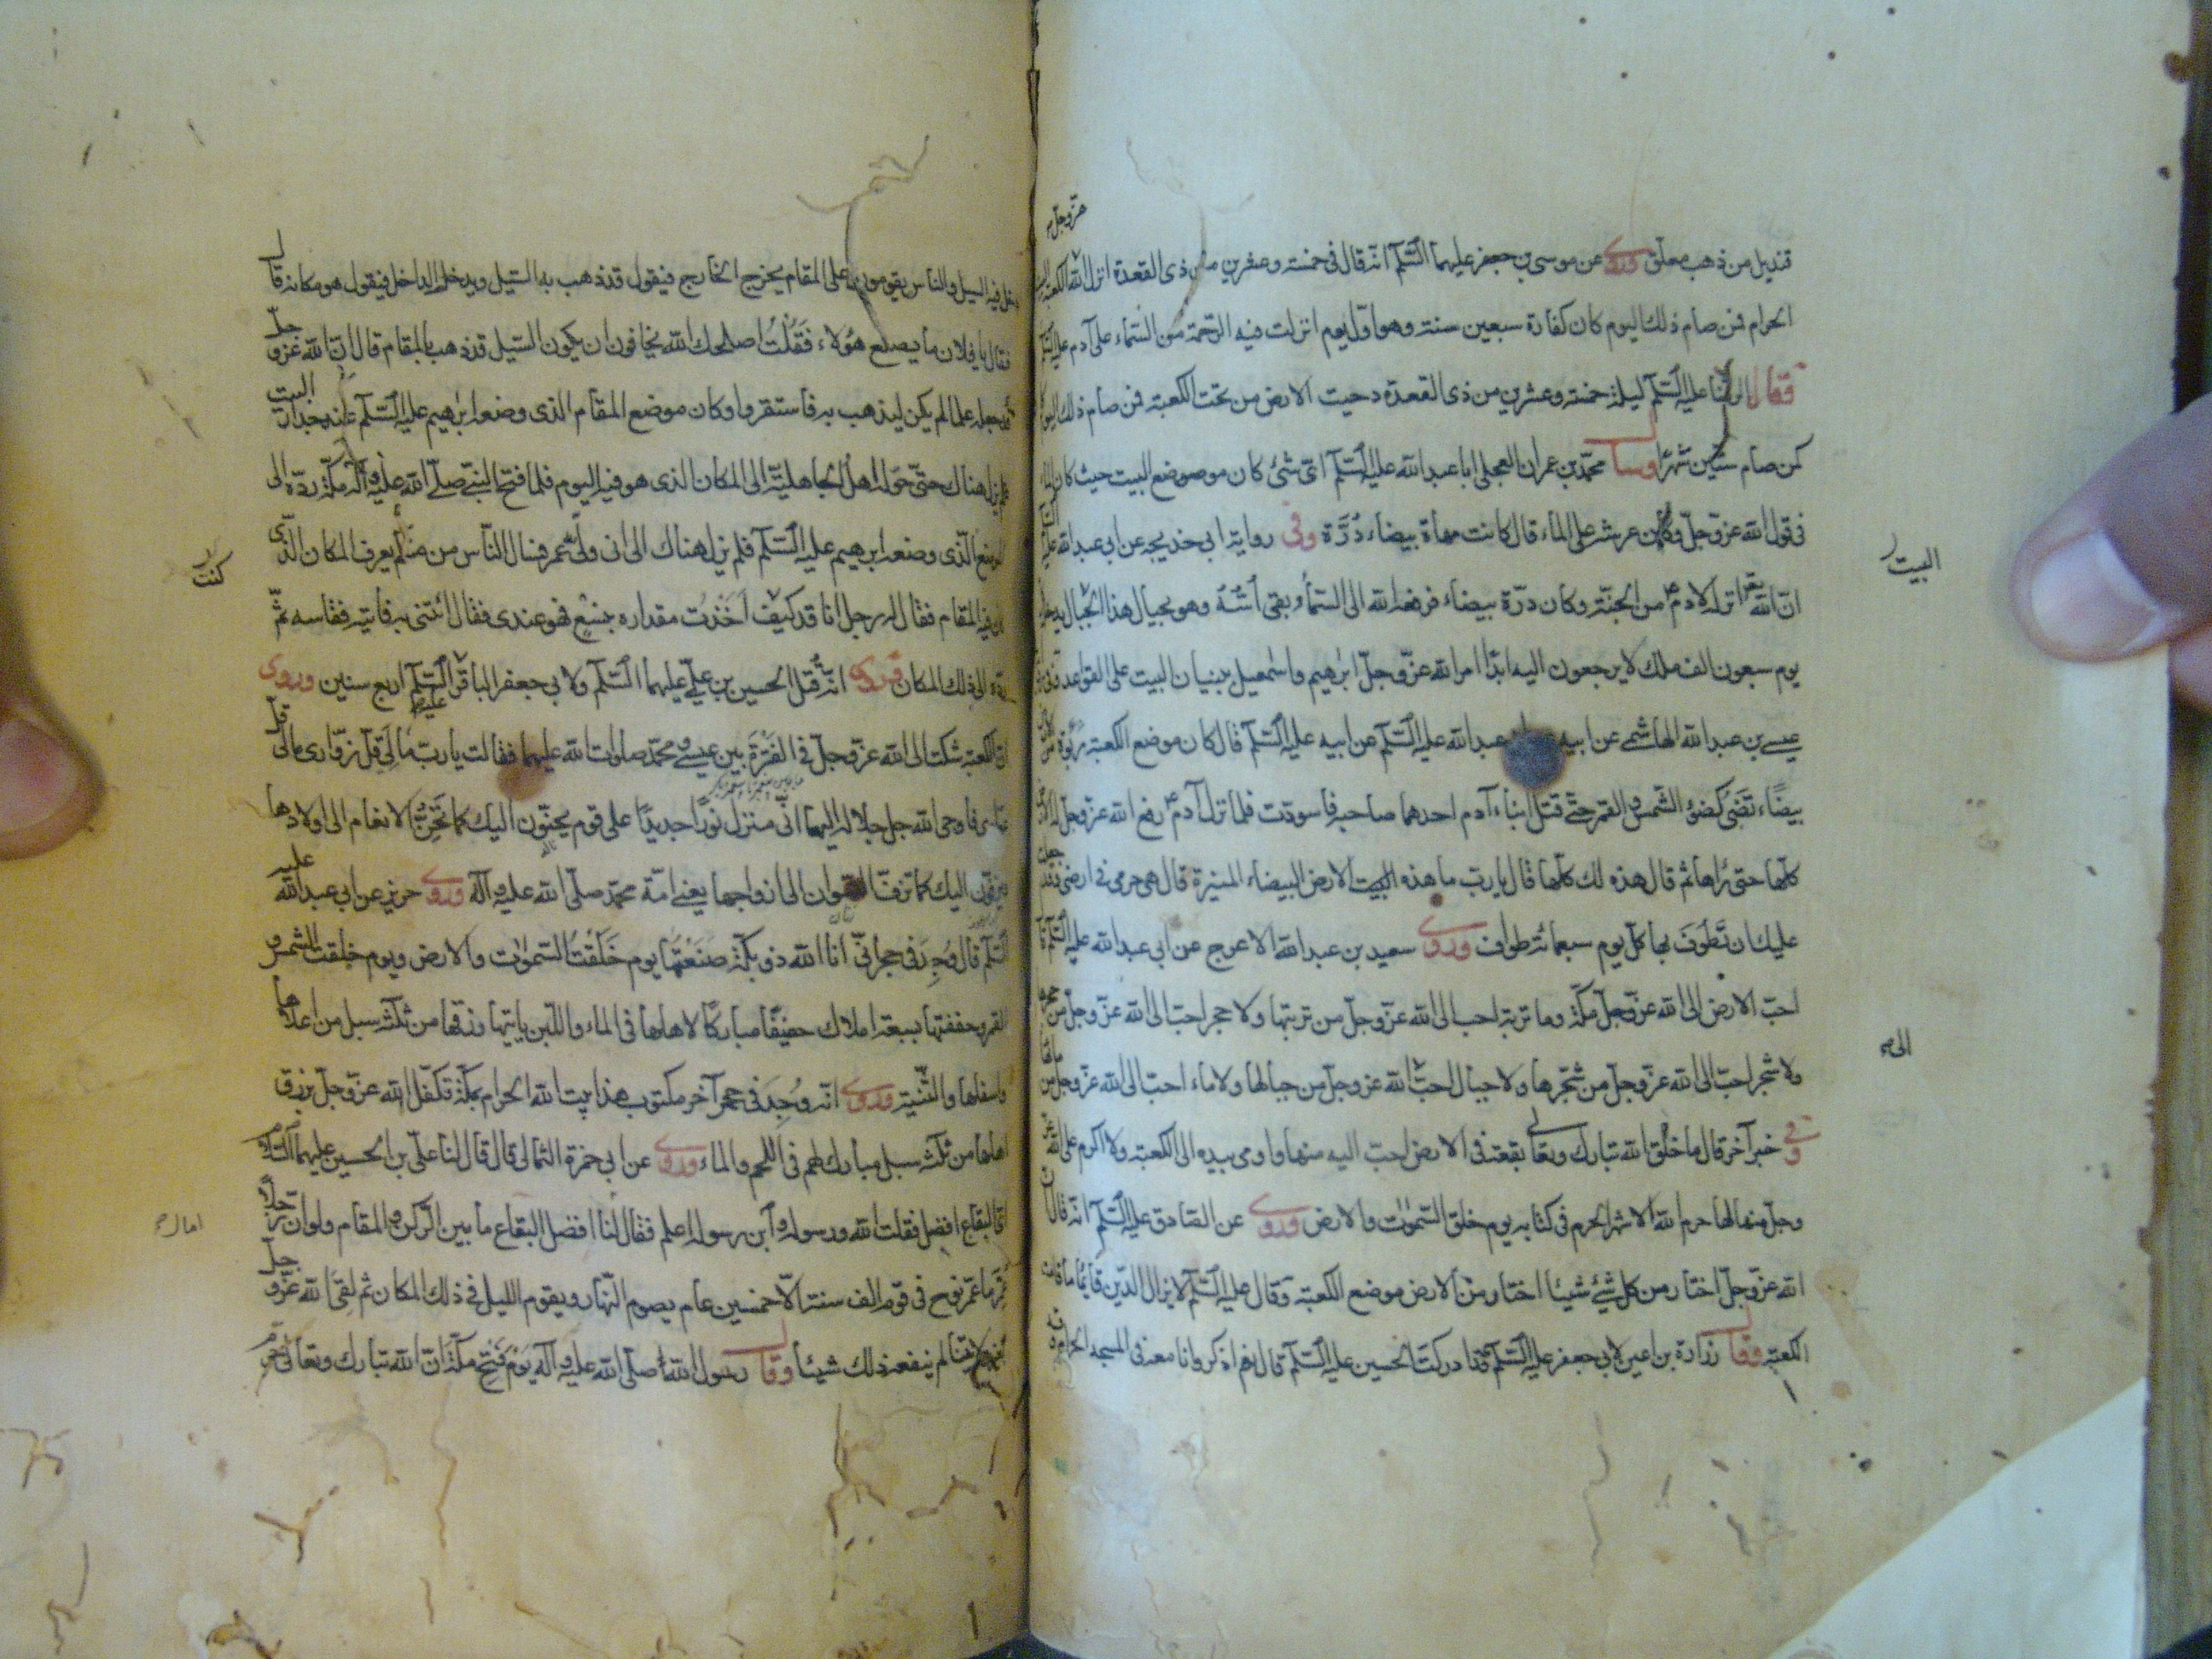 عزّوجلّ
قنديل من ذهب معلّق وروى عن موسى بن جعفر عليهما السّلم انه قال فى خمسة وعشرين من ذى القعدة انزل الله الكعبة البيت
الحرام فمن صام ذلك اليوم كان كفارة سبعين سنة وهو اوّل يوم انزلت فيه الرّحمة من السّماء على آدم عليه السّلم
وقال الرّضا عليه السّلم ليلة خمسة وعشرين من ذى القعدة دحيت الارض من تحت الكعبة فمن صام ذلك اليوم
كمن صام ستّين شهرًا وسأل محمّد بن عمران العجلى ابا عبد الله عليه السّلم اىّ شئ كان موضع البيت حيث كان الماء
فى قول الله عزّوجلّ وكان عرشه على الماء قال كانت مهاة بيضاء دُرَّة وفى رواية ابى خديجه عن ابى عبد الله عليه
انّ الله انزله لادم من الجنّة وكان درّة بيضاء فرفعه الله الى السّماء وبقى اُسّه وهو بحيال هذا البيت يدخله
البيت
يوم سبعون الف ملك لا يرجعون اليه ابدًا امر الله عزّوجلّ ابرهيم واسمعيل ببنيان البيت على القواعد
عيسى بن عبد الله الهاشمى عن ابيه عن ابى عبد الله عليه السّلم عن ابيه عليه السّلم قال كان موضع الكعبة ربوة من الارض
بيضاء تضئ كضوء الشّمس والقمر حتّى قتل ابناء آدم احدهما صاحبه فاسودّت فلما نزل آدم رفع الله عزّوجلّ له الارض
كلّها حتى رآها ثم قال هذه لك كلّها قال يا ربّ ما هذه الارض البيضاء المنيرة قال هى حرمى فى ارضى وقد جعلت
عليك ان تَطُوفَ بها كلّ يوم سبعمائة طواف وروى سعيد بن عبد الله الاعرج عن ابى عبد الله عليه السّلم قال
احبّ الارض الى الله عزّوجلّ مكّة وما تربة احب الى الله عزّوجلّ من تربتها ولا حجر احبّ الى الله عزّوجلّ من حجرها
ولا شجر احبّ الى الله عزّوجلّ من شجرها ولا جبال احبّ الله عزوجلّ من جبالها ولا ماء احبّ الى الله عزّوجلّ من مائها
الى
وفى خبر آخر قال ما خلق الله تبارك وتعالى بقعة فى الارض احبّ اليه منها واومى بيده الى الكعبة ولا اكرم على الله عزّ
وجلّ منها لها حرم الله الاشهر الحرم فى كتابه يوم خلق السّموات والارض وروى عن الصّادق عليه السّلم انّه قال ان
الله عزّوجلّ اختار من كل شئ شيئًا اختار من الارض موضع الكعبة وقال عليه السّلم لا يزال الدّين قائمًا ما قامت
الكعبة وقال زرارة بن اعين لابى جعفر عليه السّلم قد ادركت الحسين عليه السّلم قال نعم اذكر وانا معه فى المسجد الحرام وقد
دخل فيه السيل والناس يقومون على المقام يخرج الخارج فيقول قد ذهب به السّيل ويدخل الداخل فيقول هو مكانه قال
فقال يا فلان ما يصنع هؤلاء فقلتُ اصلحك الله يخافون ان يكون السّيل قد ذهب بالمقام قال انّ الله عزّوجلّ
قد جعله علما لم يكن ليذهب به فاستقروا وكان موضع المقام الذى وضعه ابرهيم عليه السّلم عند جدار البيت
فلم يزل هناك حتى حوّله اهل الجاهليّة الى المكان الذى هو فيه اليوم فلما فتح النبىّ صلّى الله عليه وآله مكّة ردّه الى
الموضع الّذى وضعه ابرهيم عليه السّلم فلم يزل هناك الى ان ولى عمر فسأل النّاس من منكم يعرف المكان الذى
كنت
كان فيه المقام فقال له رجل انا قد كنت اَخذتُ مقداره بنسْع فهو عندى فقال ائتنى به فاتيته فقاسه ثمّ
ردّه الى ذلك المكان وروى انّه قُتل الحسين بن علىّ عليهما السّلم ولابى جعفر الباقر عليه السّلم اربع سنين وروى
انّ الكعبة شكت الى الله عزّوجلّ فى الفَتْرَة بين عيسى ومحمّد صلوات الله عليهما فقالت يا ربّ مَالِى قلّ زوّارى مالى قلّ
عوّادى فاوحى الله جل جلاله اليها انّى منزل نورًا جديدًا على قوم يحنّون اليك كما تَحِنُّ الانعام الى اولادها
ويزفّون اليك كما تزفّ النسوان الى ازواجها يعنى امّة محمّد صلّى الله عليه وآله وروى حريز عن ابى عبد الله عليه
السّلم قال وُجِدَ فى حجر انّى انا الله ذو بكّة صنعتُها يوم خَلَقْتُ السّموات والارض ويوم خلقت الشمس و
القمر وحففتها بسبعة املاك حفيفًا مباركًا لاهلها فى الماء واللّبن ياتيها رزقها من ثلثة سبل من اعلاها
واسفلها والثّنيّة وروى انّه وُجِدَ فى حجر آخر مكتوب هذا بيت الله الحرام بمكّة تكفّل الله عزّوجلّ برزق
اهلها من ثلثة سبل مبارك لهم فى اللّحم والماء وروى عن ابى حمزة الثّمالى قال قال لنا علىّ بن الحسين عليهما السّلم
اىّ البقاع افضل فقلت الله ورسوله وابن رسوله اعلم فقال لنا افضل البقاع ما بين الرّكن والمقام ولو ان رجلًا
عمّر ما عمّر نوح فى قومه الف سنة الّا خمسين عام يصوم النّهار ويقوم الليل فى ذلك المكان ثم لقى الله عزّوجلّ
بغير ولايتنا لم ينفعه ذلك شيئًا وقال رسول الله صلّى الله عليه وآله يوم فَتْحِ مكّة انّ الله تبارك وتعالى حرّم